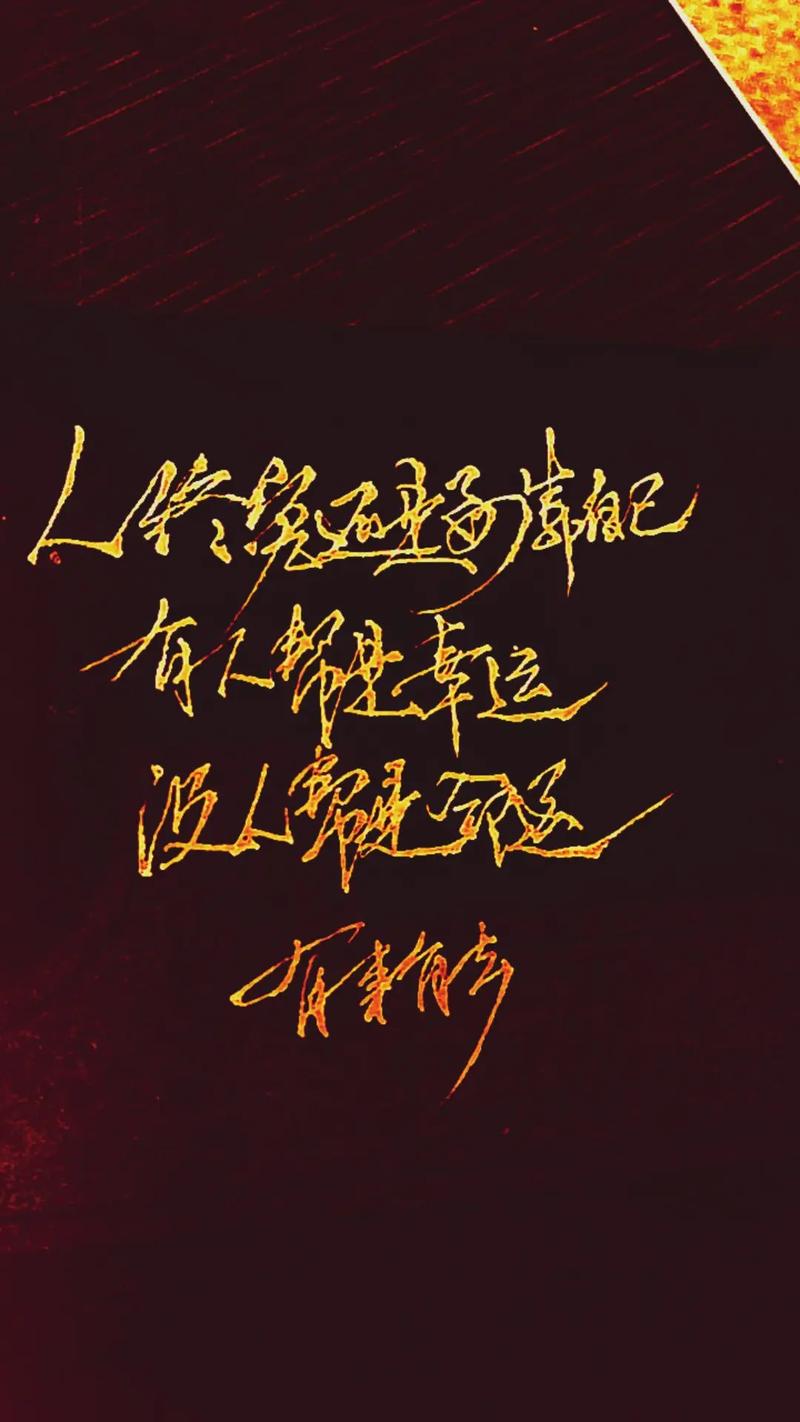 人终究还是要靠自己
有人帮是幸运
没人帮是命运